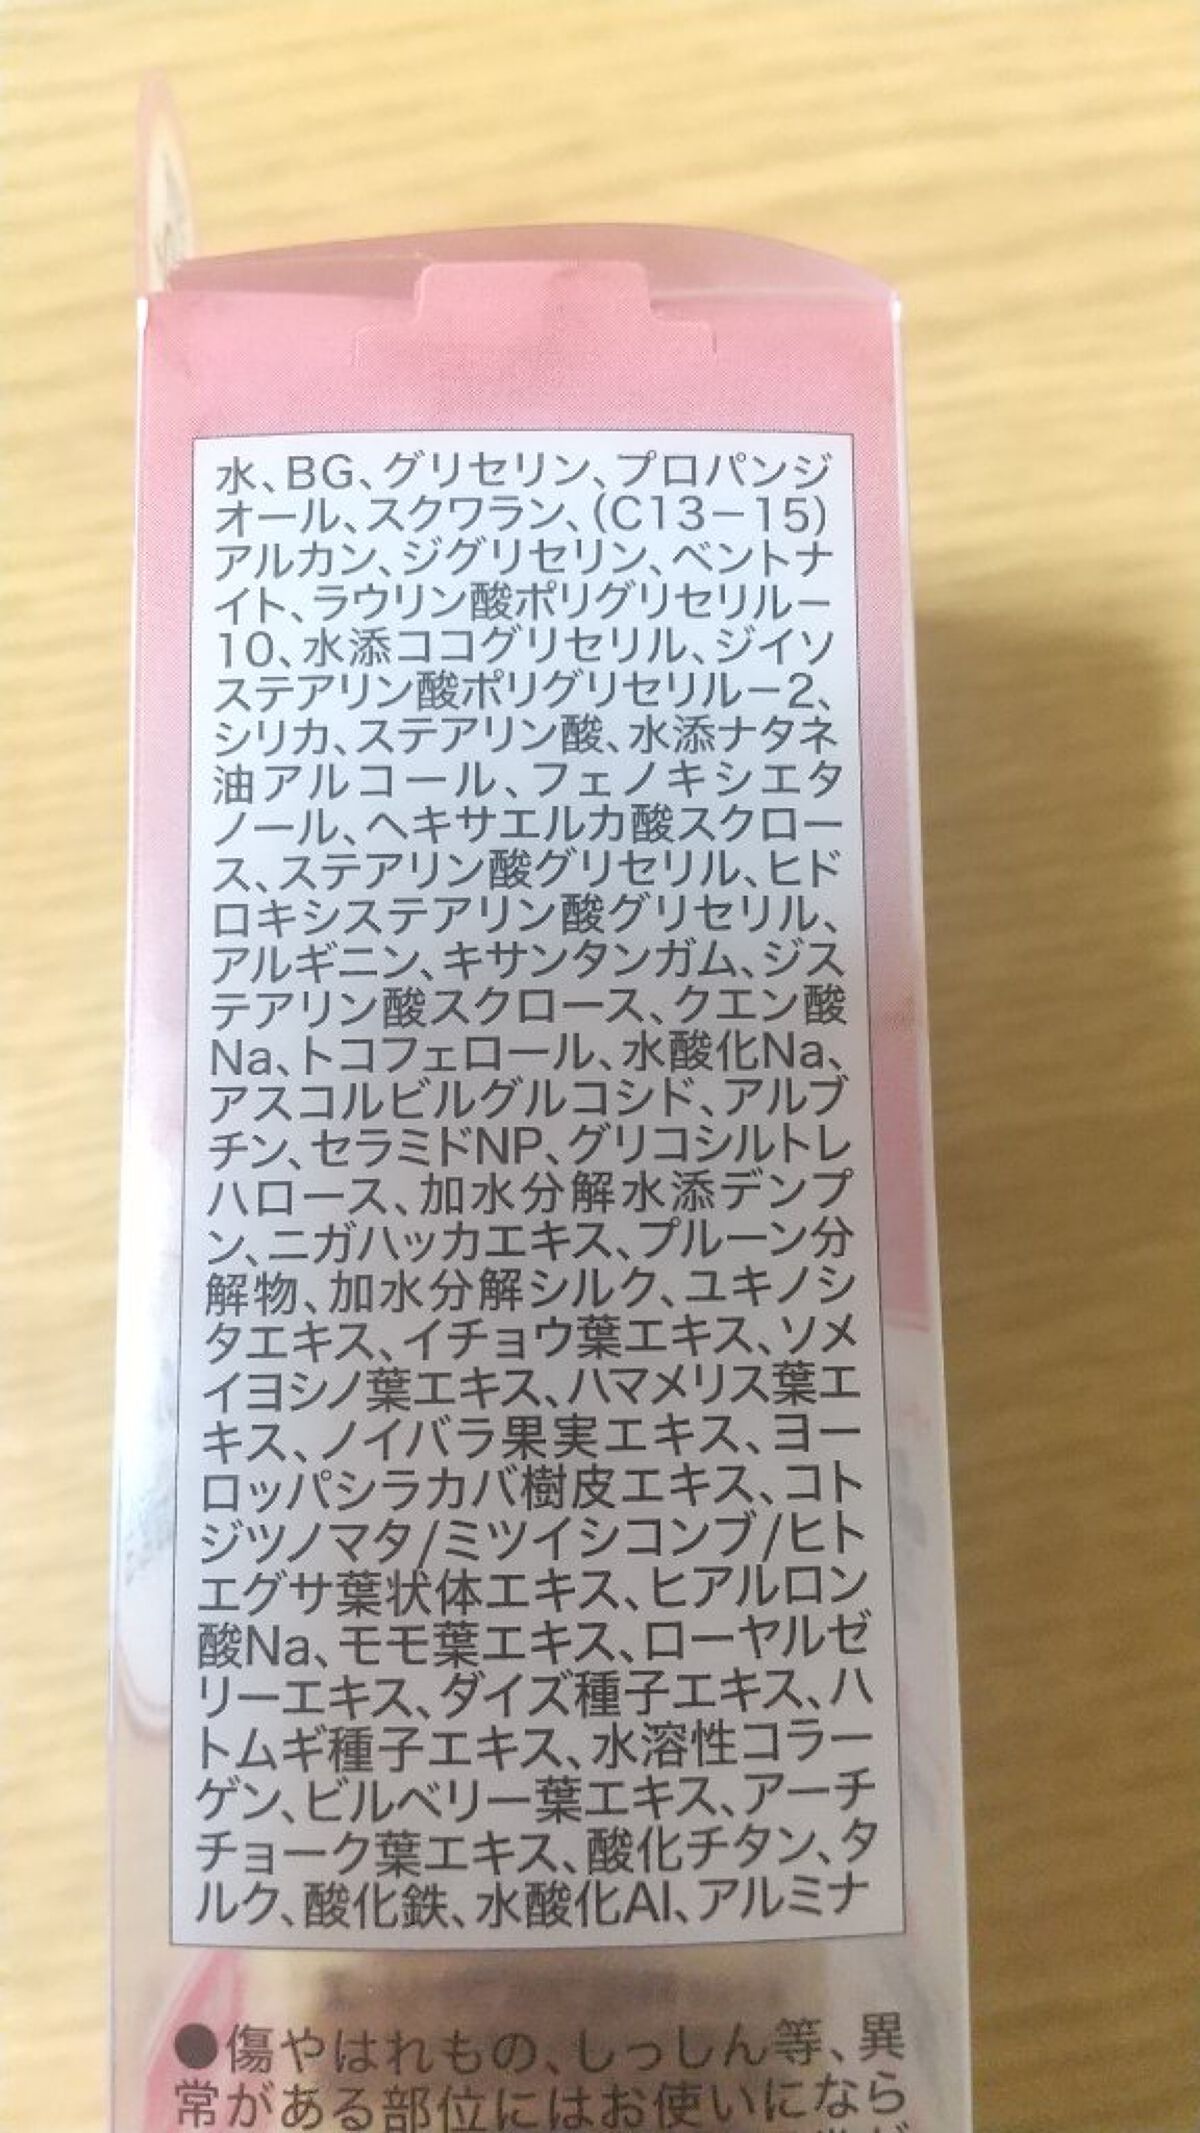 水、BG、グリセリン、プロパンジ
オール、スクワラン、(C13−15)
アルカン、ジグリセリン、ベントナ
イト、ラウリン酸ポリグリセリルー
10、水添ココグリセリル、ジイソ
ステアリン酸ポリグリセリルー2、
シリカ、ステアリン酸、水添ナタネ
油アルコール、フェノキシエタ
ノール、ヘキサエルカ酸スクロー
ス、ステアリン酸グリセリル、ヒド
ロキシステアリン酸グリセリル、
アルギニン、キサンタンガム、ジス
テアリン酸スクロース、クエン酸
Na、トコフェロール、水酸化Na、
アスコルビルグルコシド、アルブ
チン、セラミドNP、グリコシルトレ
ハロース、加水分解水添デンプ
ン、ニガハッカエキス、プルーン分
解物、加水分解シルク、ユキノシ
タエキス、イチョウ葉エキス、ソメ
イヨシノ葉エキス、ハマメリス葉エ
キス、ノイバラ果実エキス、ヨー
ロッパシラカバ樹皮エキス、コト
ジツノマタ/ミツイシコンブ/ヒト
エグサ葉状体エキス、ヒアルロン
酸Na、モモ葉エキス、ローヤルゼ
リーエキス、ダイズ種子エキス、ハ
トムギ種子エキス、水溶性コラー
ゲン、ビルベリー葉エキス、アーチ
チョーク葉エキス、酸化チタン、タ
ルク、酸化鉄、水酸化Al、アルミナ
●傷やはれもの、しっしん等、異
常がある部位にはお使いになら